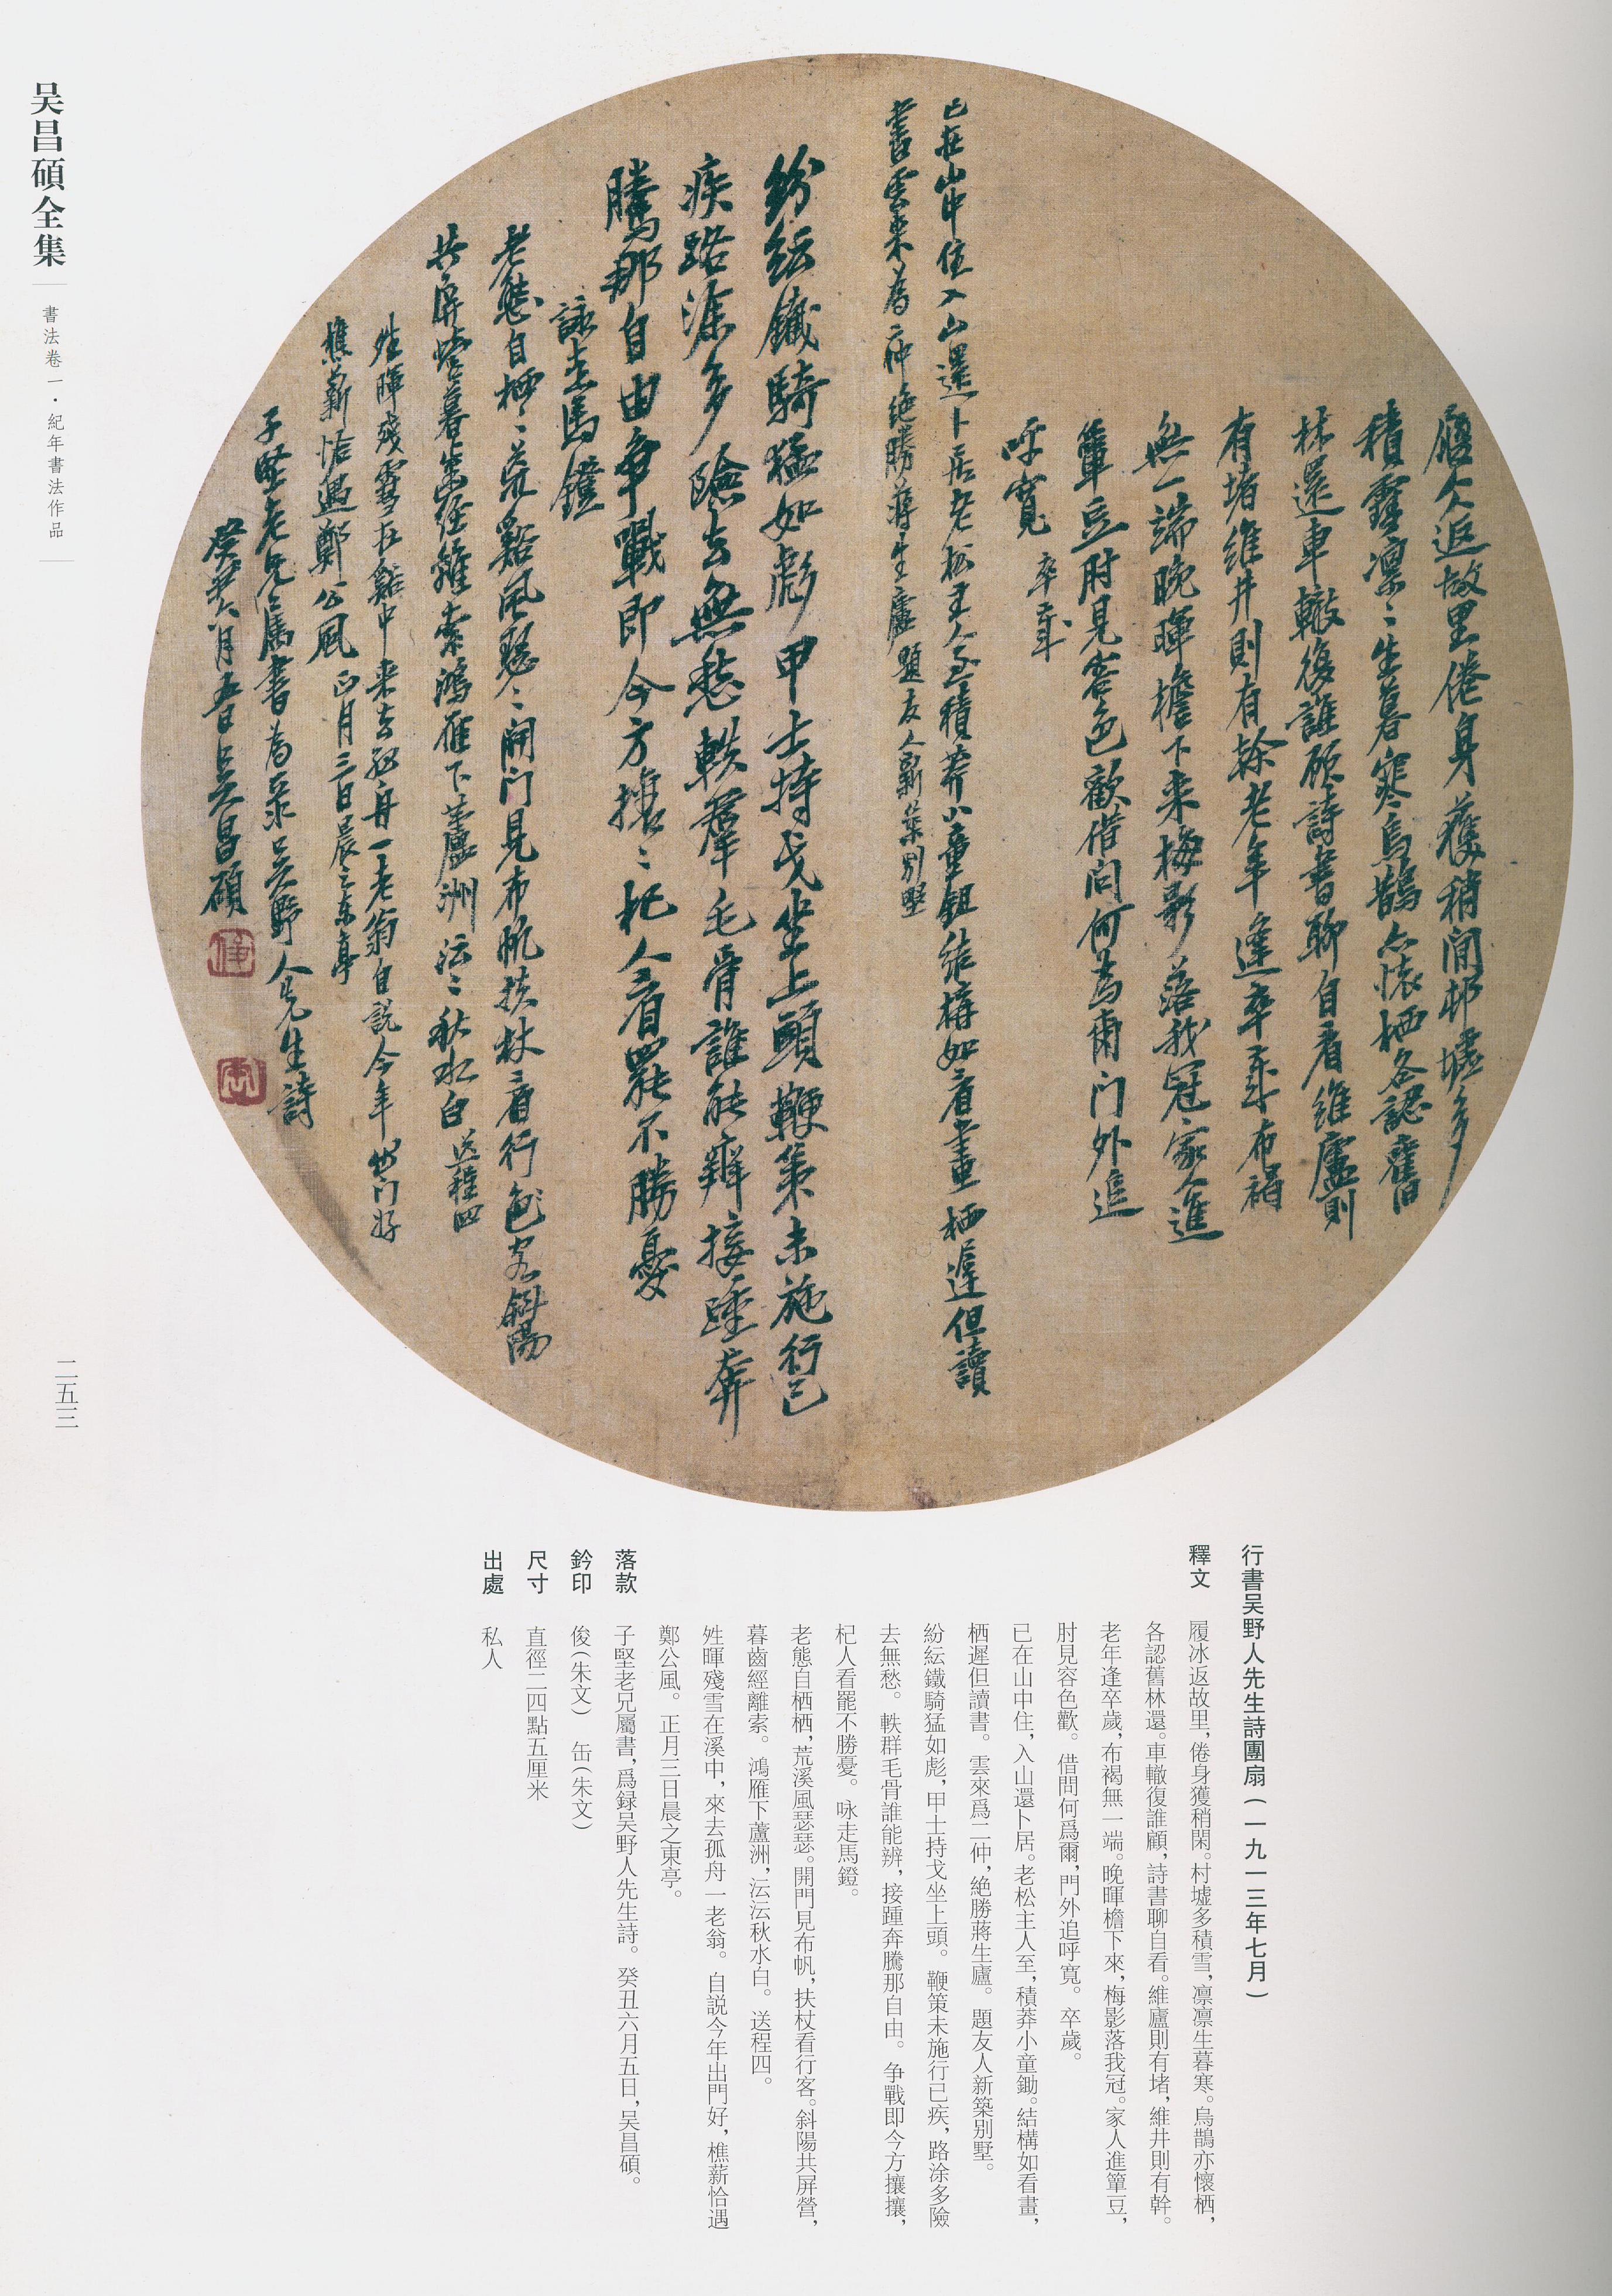 履仌返故里倦身獲稍閒邨墟多
積雪凛〻生暮寒烏鵲亦懷栖各認舊
林還車轍復誰顧詩書聊自看維廬則
有堵維井則有榦老年逢卒歲布褐
無一端晚暉檐下来梅影落我冠家人進
簞豆肘見容色歡借問何為爾门外追
呼寬 卒歲
已在山中住入山還卜居老松主人至積莽小童鉏結構如看畫栖遲但讀
書雲来為二仲絶勝蔣生廬題友人新築別墅
紛紜鐵騎猛如彪甲士持戈坐上頭鞭策未施行已
疾路涂多險去無愁軼羣毛骨誰能辨接踵奔
騰那自由爭戰即今方攘〻杞人看罷不勝憂
詠走馬鐙
老態自栖〻荒谿風瑟〻開门見布帆扶杖看行客斜陽
共屏營暮齒經離索鴻雁下蘆洲沄〻秋水白送程四
姓暉殘雪在谿中来去孤舟一老翁自説今年出门好
樵薪恰遇鄭公風 正月三日晨之东亭
子堅老兄屬書為录吴野人先生詩
癸丑六月五日吴昌碩
俊
缶
行書吴野人先生詩團扇（一九一三年七月）
釋文 履冰返故里，倦身獲稍閑。村墟多積雪，凛凛生暮寒。烏鵲亦懷栖，
各認舊林還。車轍復誰顧，詩書聊自看。維廬則有堵，維井則有幹。
老年逢卒歲，布褐無一端。晚暉檐下來，梅影落我冠。家人進簞豆，
肘見容色歡。借問何爲爾，門外追呼寬。卒歲。
已在山中住，入山還卜居。老松主人至，積莽小童鋤。結構如看畫，
栖遲但讀書。雲來爲二仲，絶勝蔣生廬。題友人新築别墅。
紛紜鐵騎猛如彪，甲士持戈坐上頭。鞭策未施行已疾，路涂多險
去無愁。軼群毛骨誰能辨，接踵奔騰那自由。争戰即今方攘攘，
杞人看罷不勝憂。咏走馬鐙。
老態自栖栖，荒溪風瑟瑟。開門見布帆，扶杖看行客。斜陽共屏營，
暮齒經離索。鴻雁下蘆洲，沄沄秋水白。送程四。
姓暉殘雪在溪中，來去孤舟一老翁。自説今年出門好，樵薪恰遇
鄭公風。正月三日晨之東亭。
落款 子堅老兄屬書，爲録吴野人先生詩。癸丑六月五日，吴昌碩。
鈐印 俊（朱文） 缶（朱文）
尺寸 直徑二四點五厘米
出處 私人
吴昌碩全集
書法卷一·紀年書法作品
二五三